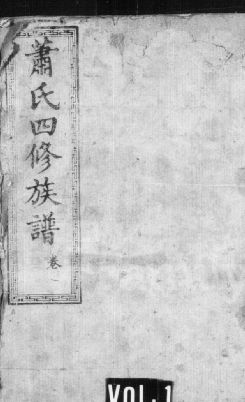 蕭氏四修族譜
卷一
VOL.1